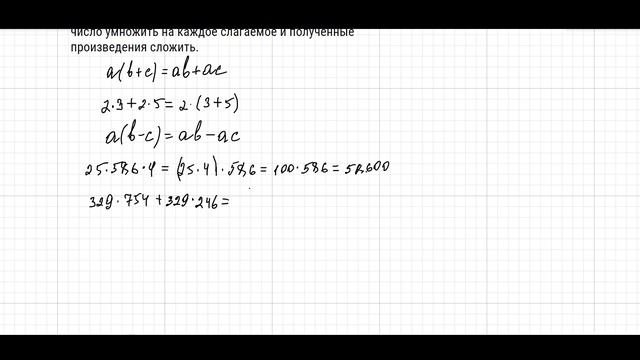 число умножить на каждое слагаемое и полученные
произведения сложить.
a(b+c)=ab+ac
2·3+2·5=2·(3+5)
a(b-c)=ab-ac
25·586·4=(25·4)·586=100·586=58600
329·754+329·246=